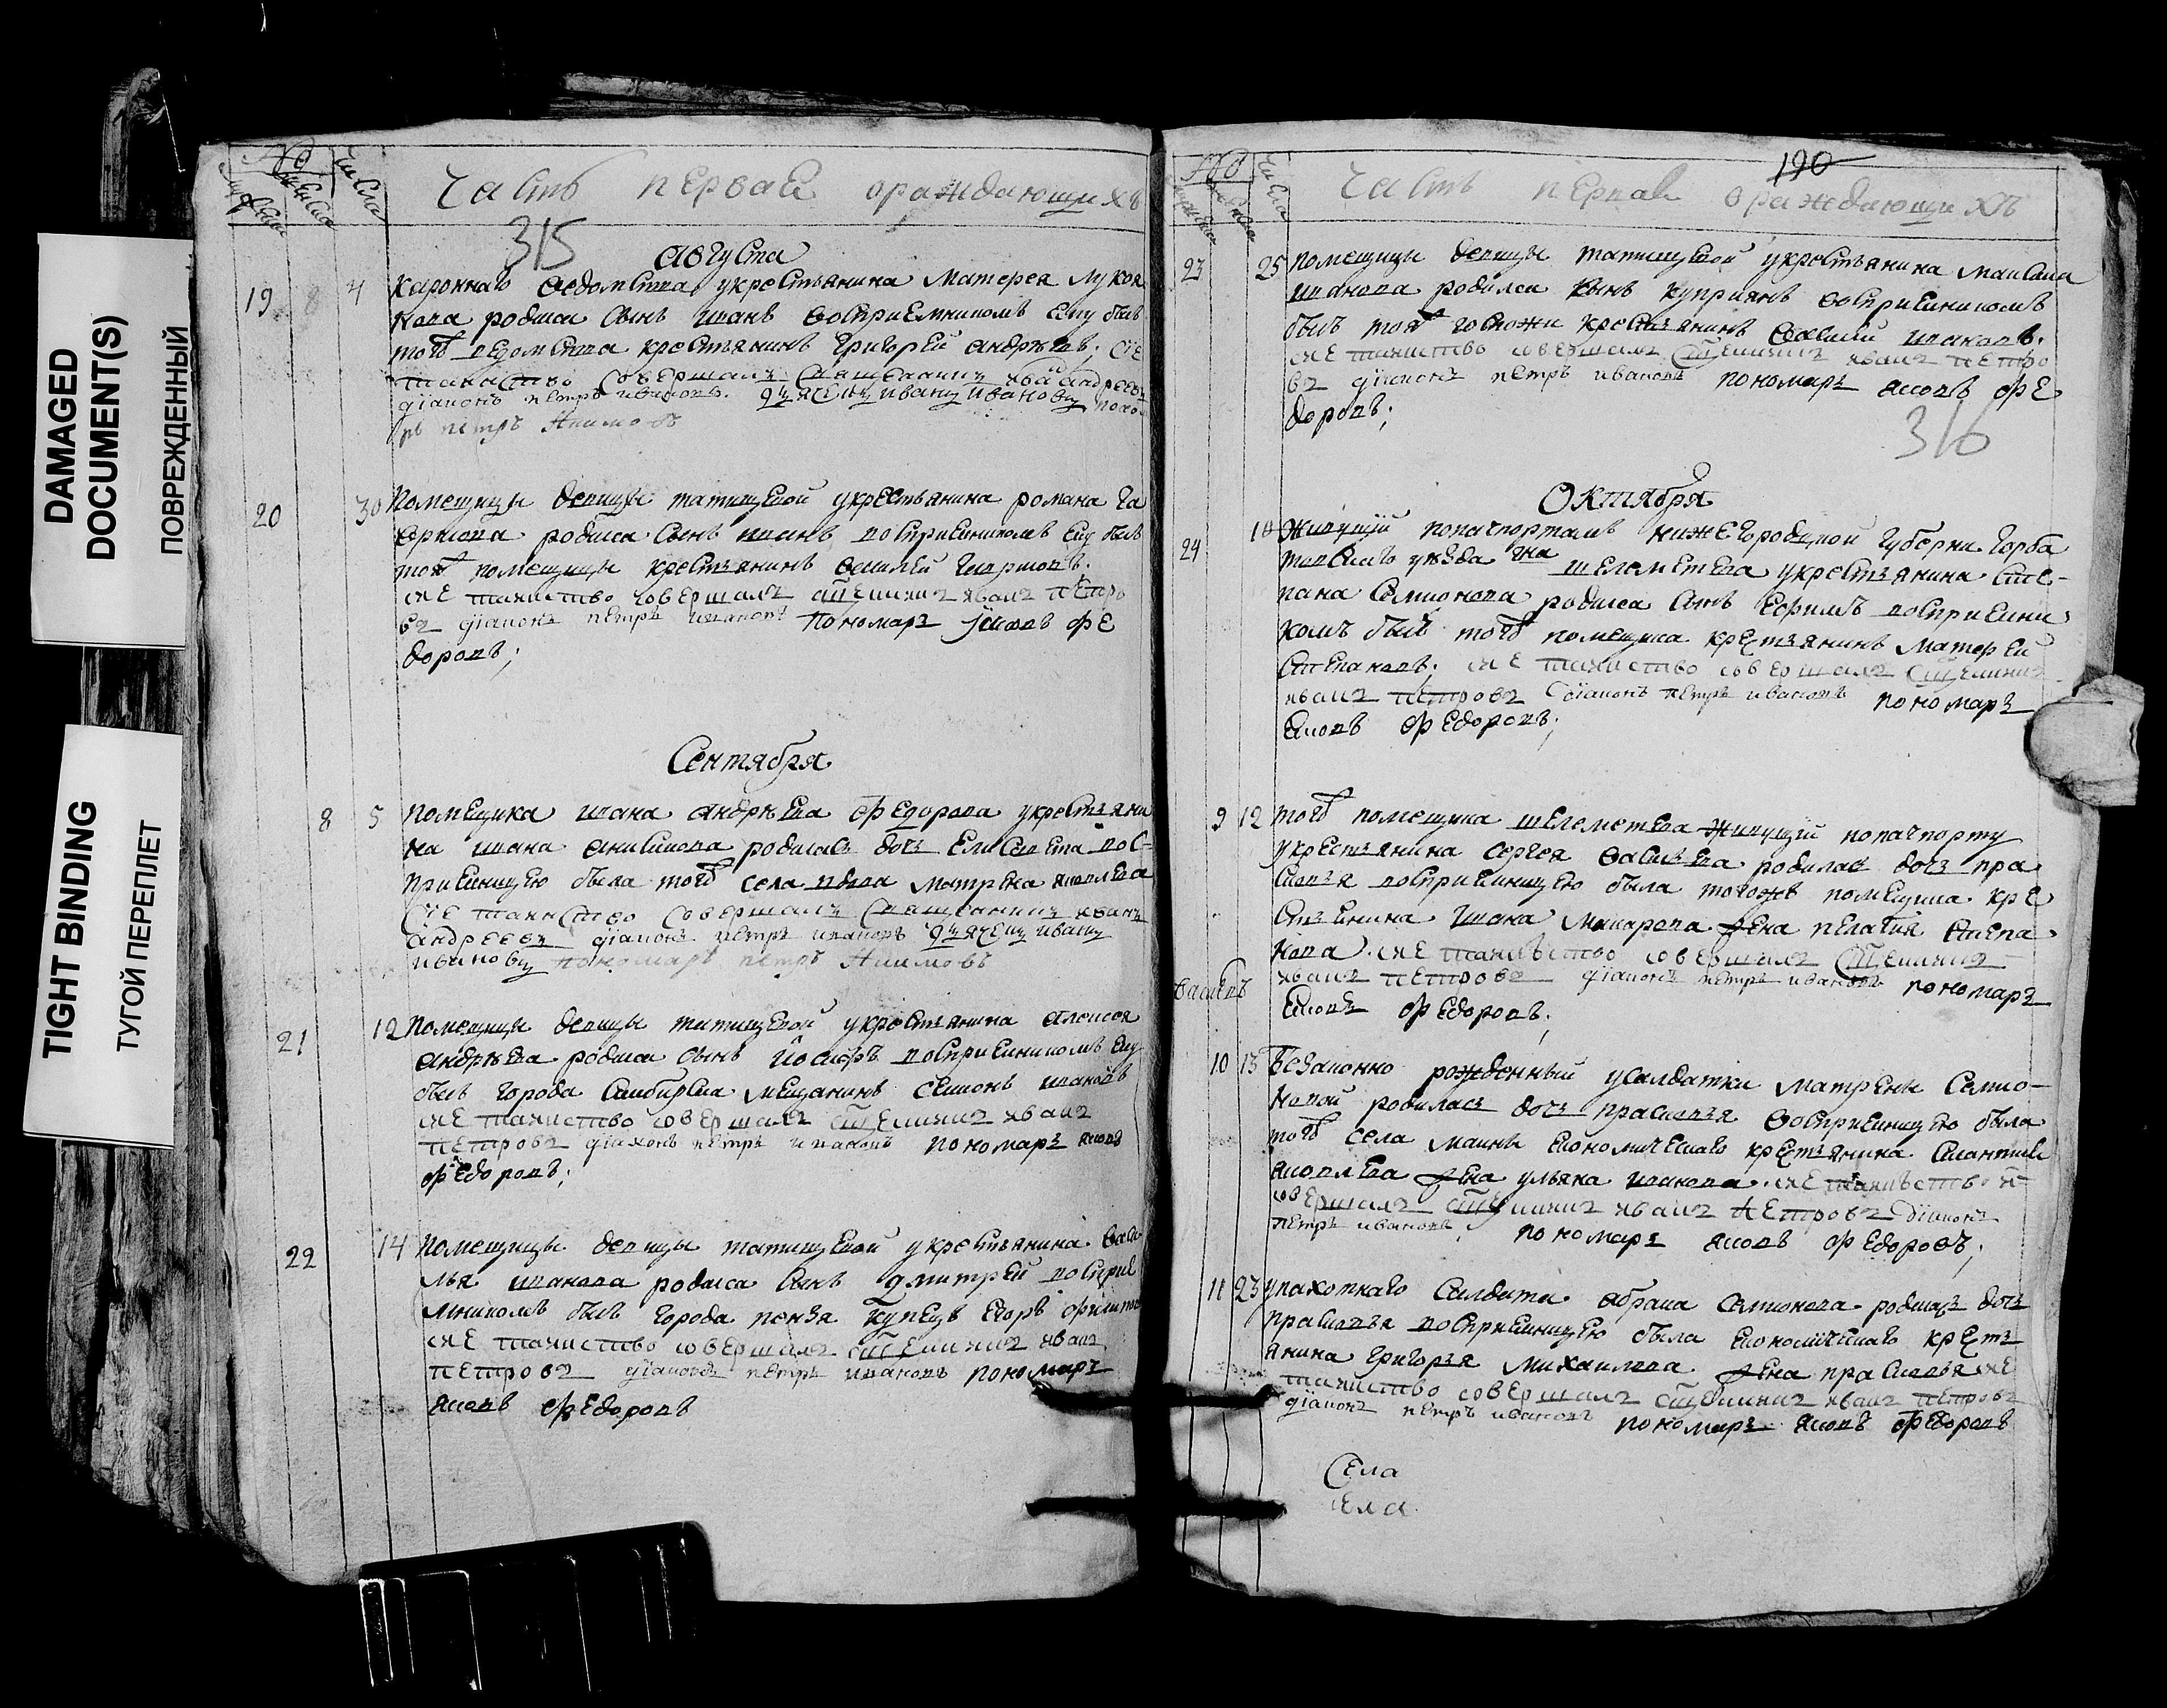 DAMAGED
DOCUMENT(S)
ПОВРЕЖДЕННЫЙ
TIGHT BINDING
ТУГОЙ ПЕРЕПЛЕТ
Числа
Часть первая ораждающихъ
315
Августа
19 8 4 каронънаго ведомства укрестьянина Матфея Лукоя
нова родился сынъ иванъ восприемникомъ ему былъ
того ведомства крестьянинъ Григорей андрѣевъ; сїе
таинство совершалъ священникъ иванъ андреевъ
дїаконъ петръ ивановъ. дьячекъ иванъ ивановъ
петръ Акимовъ
20 30 Помещицы девицы татищевой укрестьянина романа га
врилова родился сынъ иванъ восприемникомъ ему былъ
той помещицы крестьянинъ василей
сие таинство совершалъ священникъ иванъ петро
въ дїаконъ петръ ивановъ пономарь яковъ фе
доровъ;
Сентября
8 5 помещика ивана андрѣева федорова укрестьяни
на ивана анисимова родилась дочь елисавета вос
приемницею была того села вдова матрена яковлева
сїе таинство совершалъ священникъ иванъ
андреевъ дїаконъ петръ ивановъ дьячекъ иванъ
ивановъ пономарь петръ Акимовъ
21 12 Помещицы девицы татищевой укрестьянина алексея
андрѣева родился сынъ їосифъ восприемникомъ ему
былъ города симбирска мещанинъ семионъ ивановъ
сие таинство совершалъ священникъ иванъ
петровъ дїаконъ петръ ивановъ пономарь яковъ
федоровъ;
22 14 Помещицы девицы татищевой укрестьянина васи
лья иванова родился сынъ дмитрей восприе
мникомъ былъ города пенза купецъ егоръ
сие таинство совершалъ священникъ иванъ
петровъ дїаконъ петръ ивановъ пономарь
яковъ федоровъ
190
Числа
Часть первая ораждающихъ
23 25 помещицы девицы татищевой укрестьянина максима
иванова родился сынъ куприянъ восприемникомъ
былъ той госпожи крестьянинъ василий ивановъ.
сие таинство совершалъ священникъ иванъ петро
въ дїаконъ петръ ивановъ пономарь яковъ фе
доровъ;
316
Октября
24 10 живущий попачпортамъ нижегородской губерни горба
товскаго уезда гна шелеметева укрестьянина сте
пана семионова родился сынъ ефимъ восприемни
комъ былъ того помещика крестьянинъ матфей
степановъ; сие таинство совершалъ священникъ
иванъ петровъ дїаконъ петръ ивановъ пономарь
яковъ федоровъ;
9 12 того помещика шелеметева живущий попачпорту
укрестьянина сергея васильева родилась дочь пра
сковья восприемницею была тогожъ помещика кре
стьянина ивана макарова жена пелагия степа
нова. сие таинство совершалъ священникъ
иванъ петровъ дїаконъ петръ ивановъ пономарь
яковъ федоровъ;
10 15 беззаконно рожденный усалдатки матрены семио
новой родилась дочь прасковья восприемницею была
того села маины економическаго крестьянина
яковлева жена ульяна иванова. сие таинство
совершалъ священникъ иванъ петровъ дїаконъ
петръ ивановъ пономарь яковъ федоровъ;
11 23 упахотнаго салдата абрама семионова родилась дочь
прасковья восприемницею была економическаго кресть
янина григорья михаилова жена прасковья сие
таинство совершалъ священникъ иванъ петровъ
дїаконъ петръ ивановъ пономарь яковъ федоровъ
Села
ела